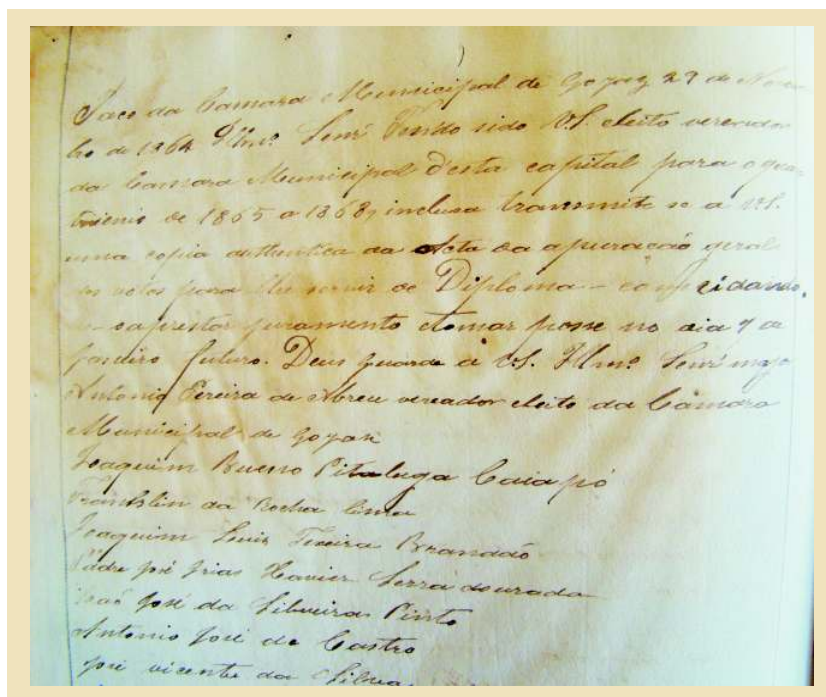 Paço da Camara Municipal de Goyaz 29 de Novem
bro de 1864 Illmo. Senr. Tendo sido V.S. eleito vereador
da Camara Municipal d'esta capital para o qua
trienio de 1865 a 1868, inclusa transmite se a V.S.
uma copia authentica da Acta da apuração geral
dos votos para lhe servir de Diploma - convidando.
o - a prestar juramento e tomar posse no dia 7 de
Janeiro futuro. Deus Guarde à V.S. Illmo. Senr. major
Antonio Pereira de Abreu vereador eleito da Câmara
Municipal de Goyaz
Joaquim Bueno Pitaluga Caiapó
Franklin da Rocha Lima
Joaquim Luis Teixeira Brandão
Padre José Xavier Serradourada
João José da Silveira Pinto
Antonio José de Castro
José Vicente da Silva